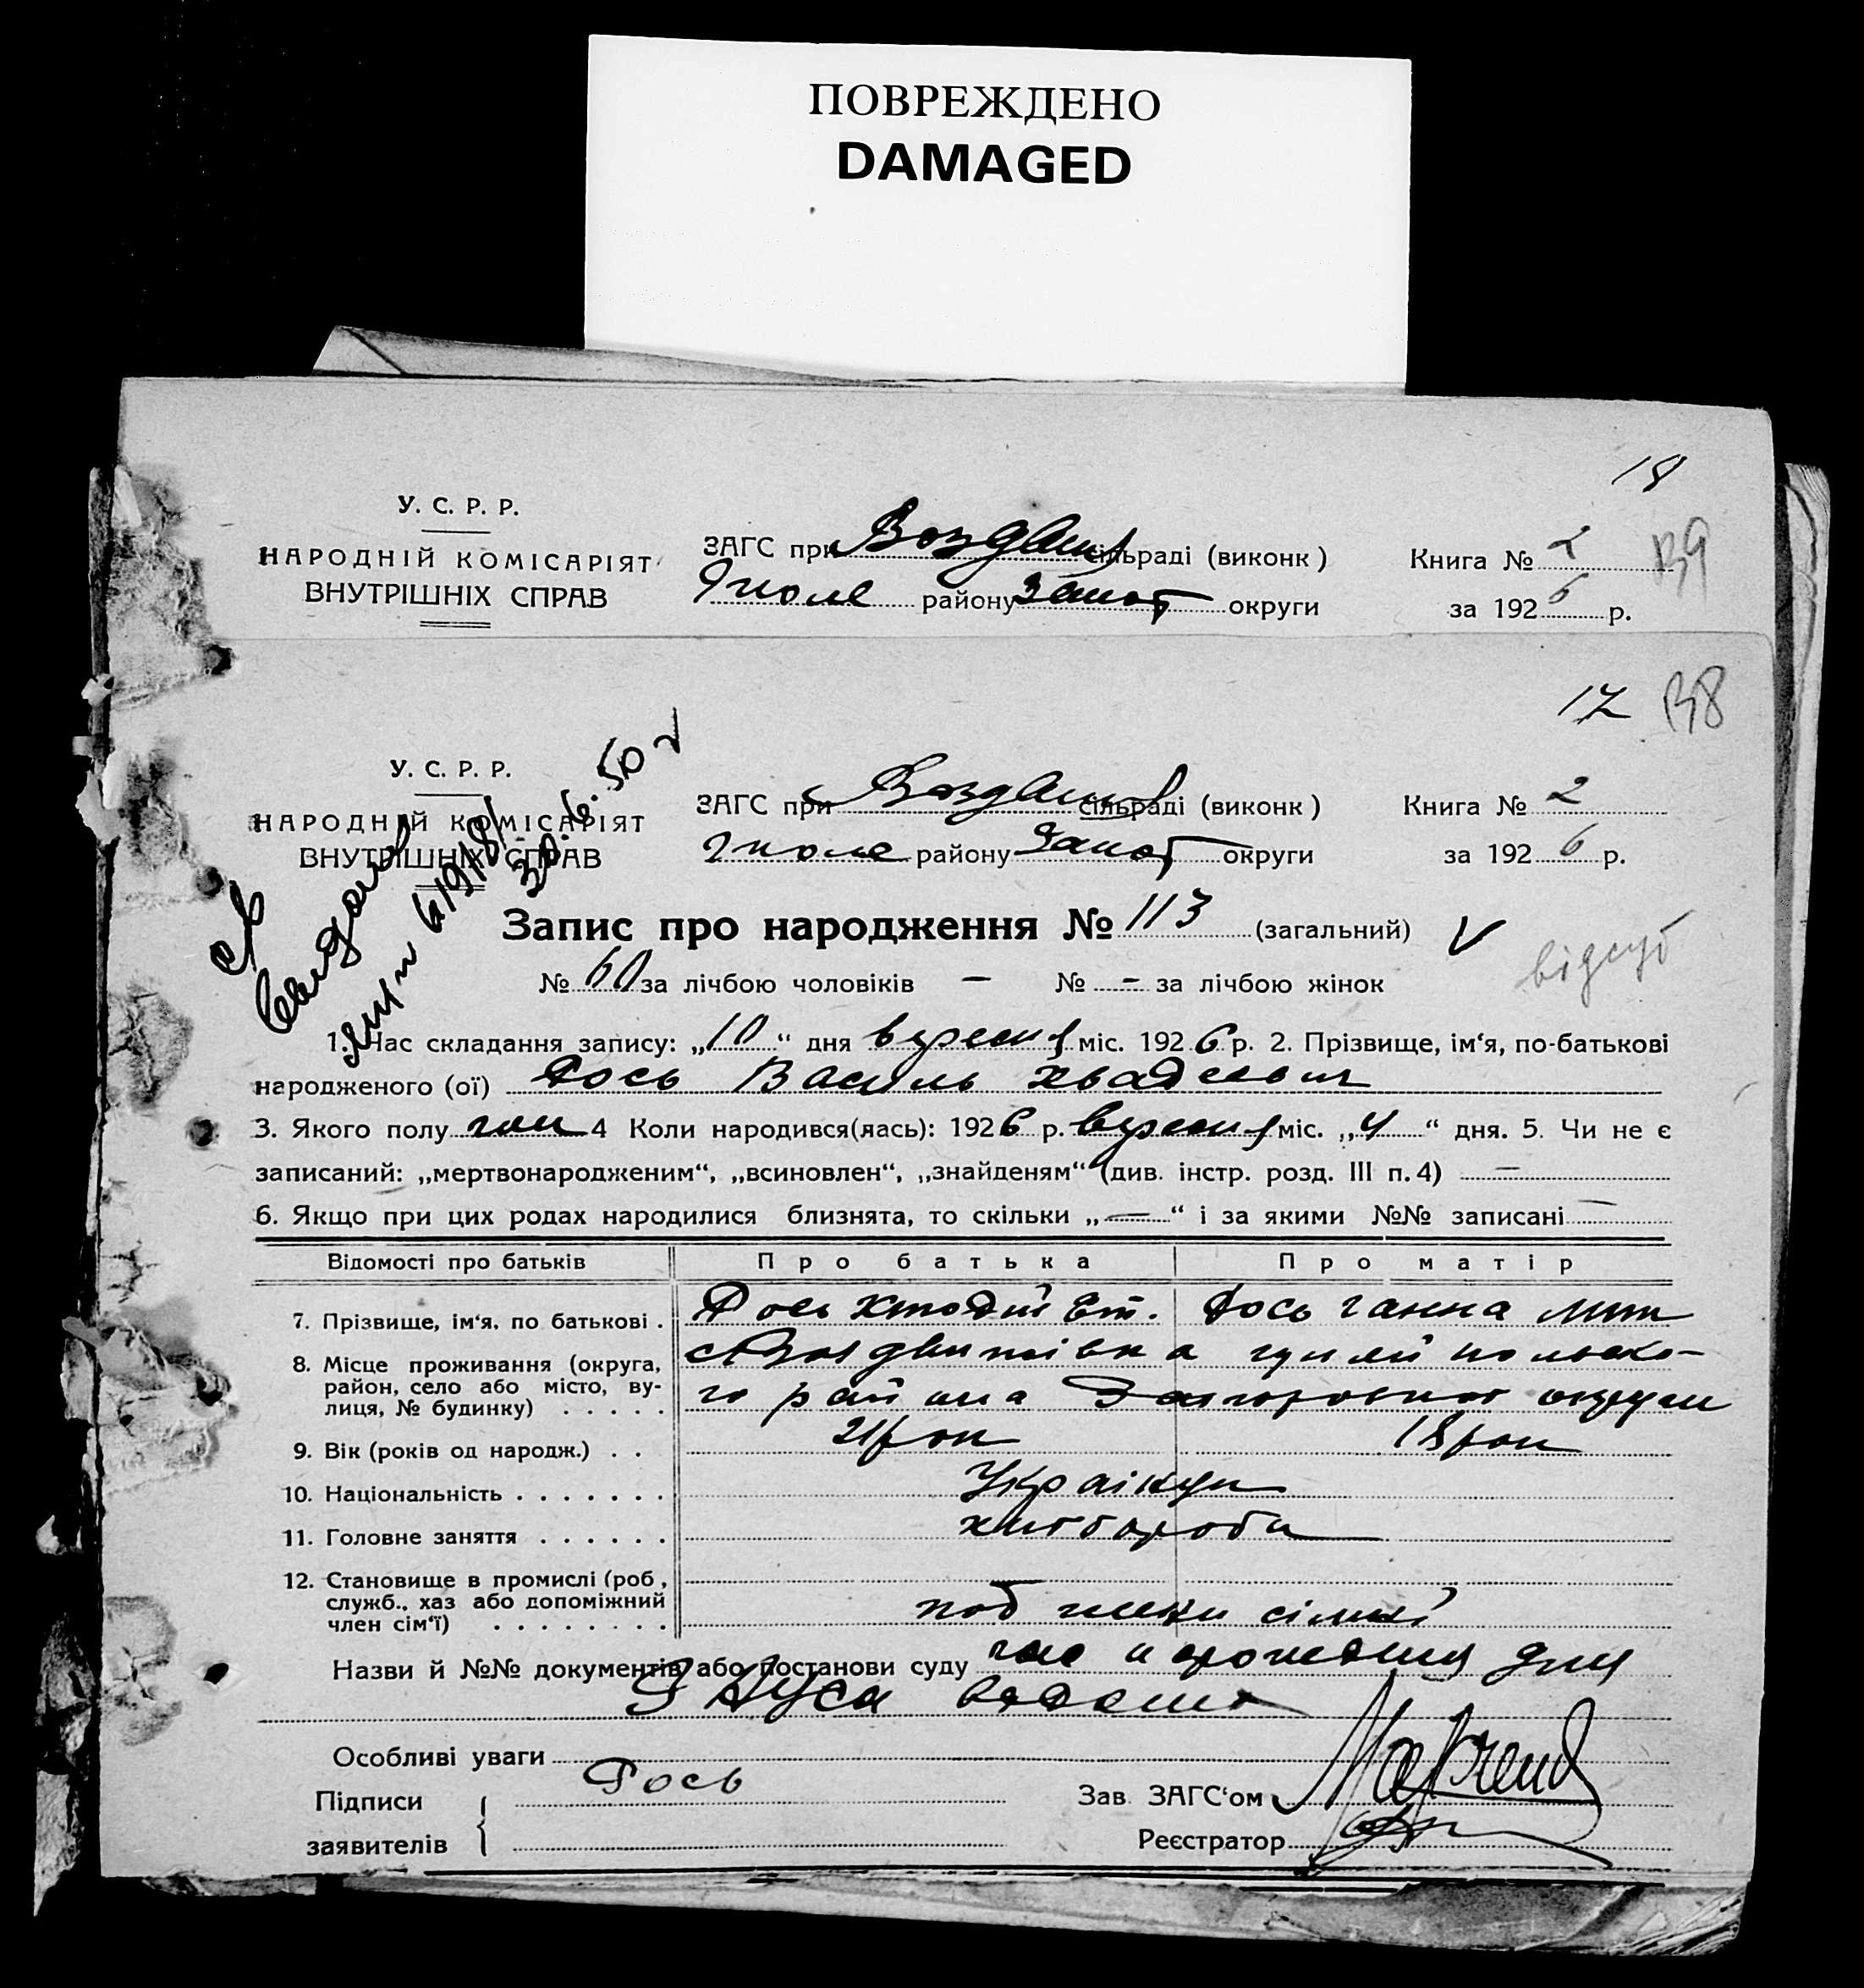 ПОВРЕЖДЕНО
DAMAGED
18
У. С. Р. Р.
НАРОДНІЙ КОМІСАРІЯТ
ВНУТРІШНІХ СПРАВ
ЗАГС при Воздвиж сільраді (виконк)
Гполе району Запор округи
Книга № 2
за 1926 р.
139
17 138
У. С. Р. Р.
НАРОДНІЙ КОМІСАРІЯТ
ВНУТРІШНІХ СПРАВ
ЗАГС при Воздвиж сільраді (виконк)
Гполе району Запор округи
Книга № 2
за 1926 р.
30.6.50
Запис про народження № 113 (загальний) V
відсут
№ 60 за лічбою чоловіків — № - за лічбою жінок
1. Час складання запису: „10“ дня вересня міс. 1926 р. 2. Прізвище, ім‘я, по-батькові
народженого (ої) Дось Василь Хвадеевич
3. Якого полу чол 4 Коли народився(лась): 1926 р. вересня міс. „4“ дня. 5. Чи не є
записаний: „мертвонародженим“, „всиновлен“, „знайденям“ (див. інстр. розд. III п. 4) —
6. Якщо при цих родах народилися близнята, то скільки „—“ і за якими №№ записані —
Відомості про батьків Про батька Про матір
7. Прізвище, ім‘я, по батькові . Дось Дось Ганна
8. Місце проживання (округа, район, село або місто, вулиця, № будинку) . . . . . Воздвижівка гуляйпольсько-
го району Запорізької округи
9. Вік (років од народж.) . . 21 рок 18 рок
10. Національність . . . . . . . Українци
11. Головне заняття . . . . . . хлібороби
12. Становище в промислі (роб., служб., хаз або допоміжний член сім‘ї) . . . . . . . . члени сімьї
Назви й №№ документів або постанови суду
Особливі уваги
Підписи
заявителів
Дось
Зав. ЗАГС‘ом
Реєстратор